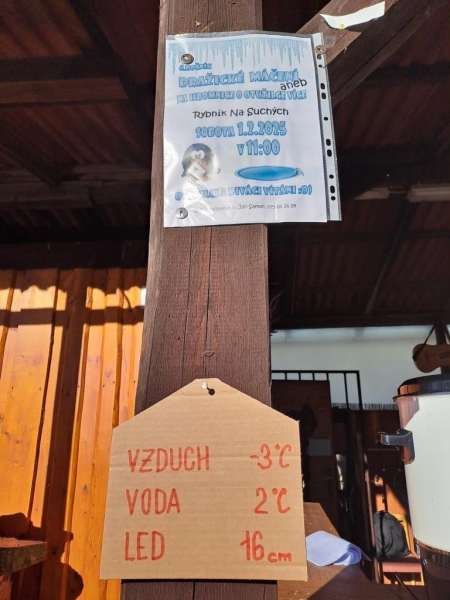 DRAŽICKÉ MÁČENÍ
aneb
NA HROMNICE O OTUŽILCE VÍCE
Rybník Na Suchých
SOBOTA 1.2.2025
V 11:00
DIVÁCI VÍTÁNI :o)
VZDUCH -3°C
VODA 2°C
LED 16 cm